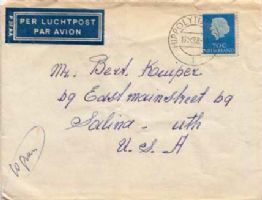 PER LUCHTPOST
PAR AVION
HIPPOLYTUS
NEDERLAND
Mr. Bert Kemper
69 East mainstreet 69
Salina - uth
U. S. A